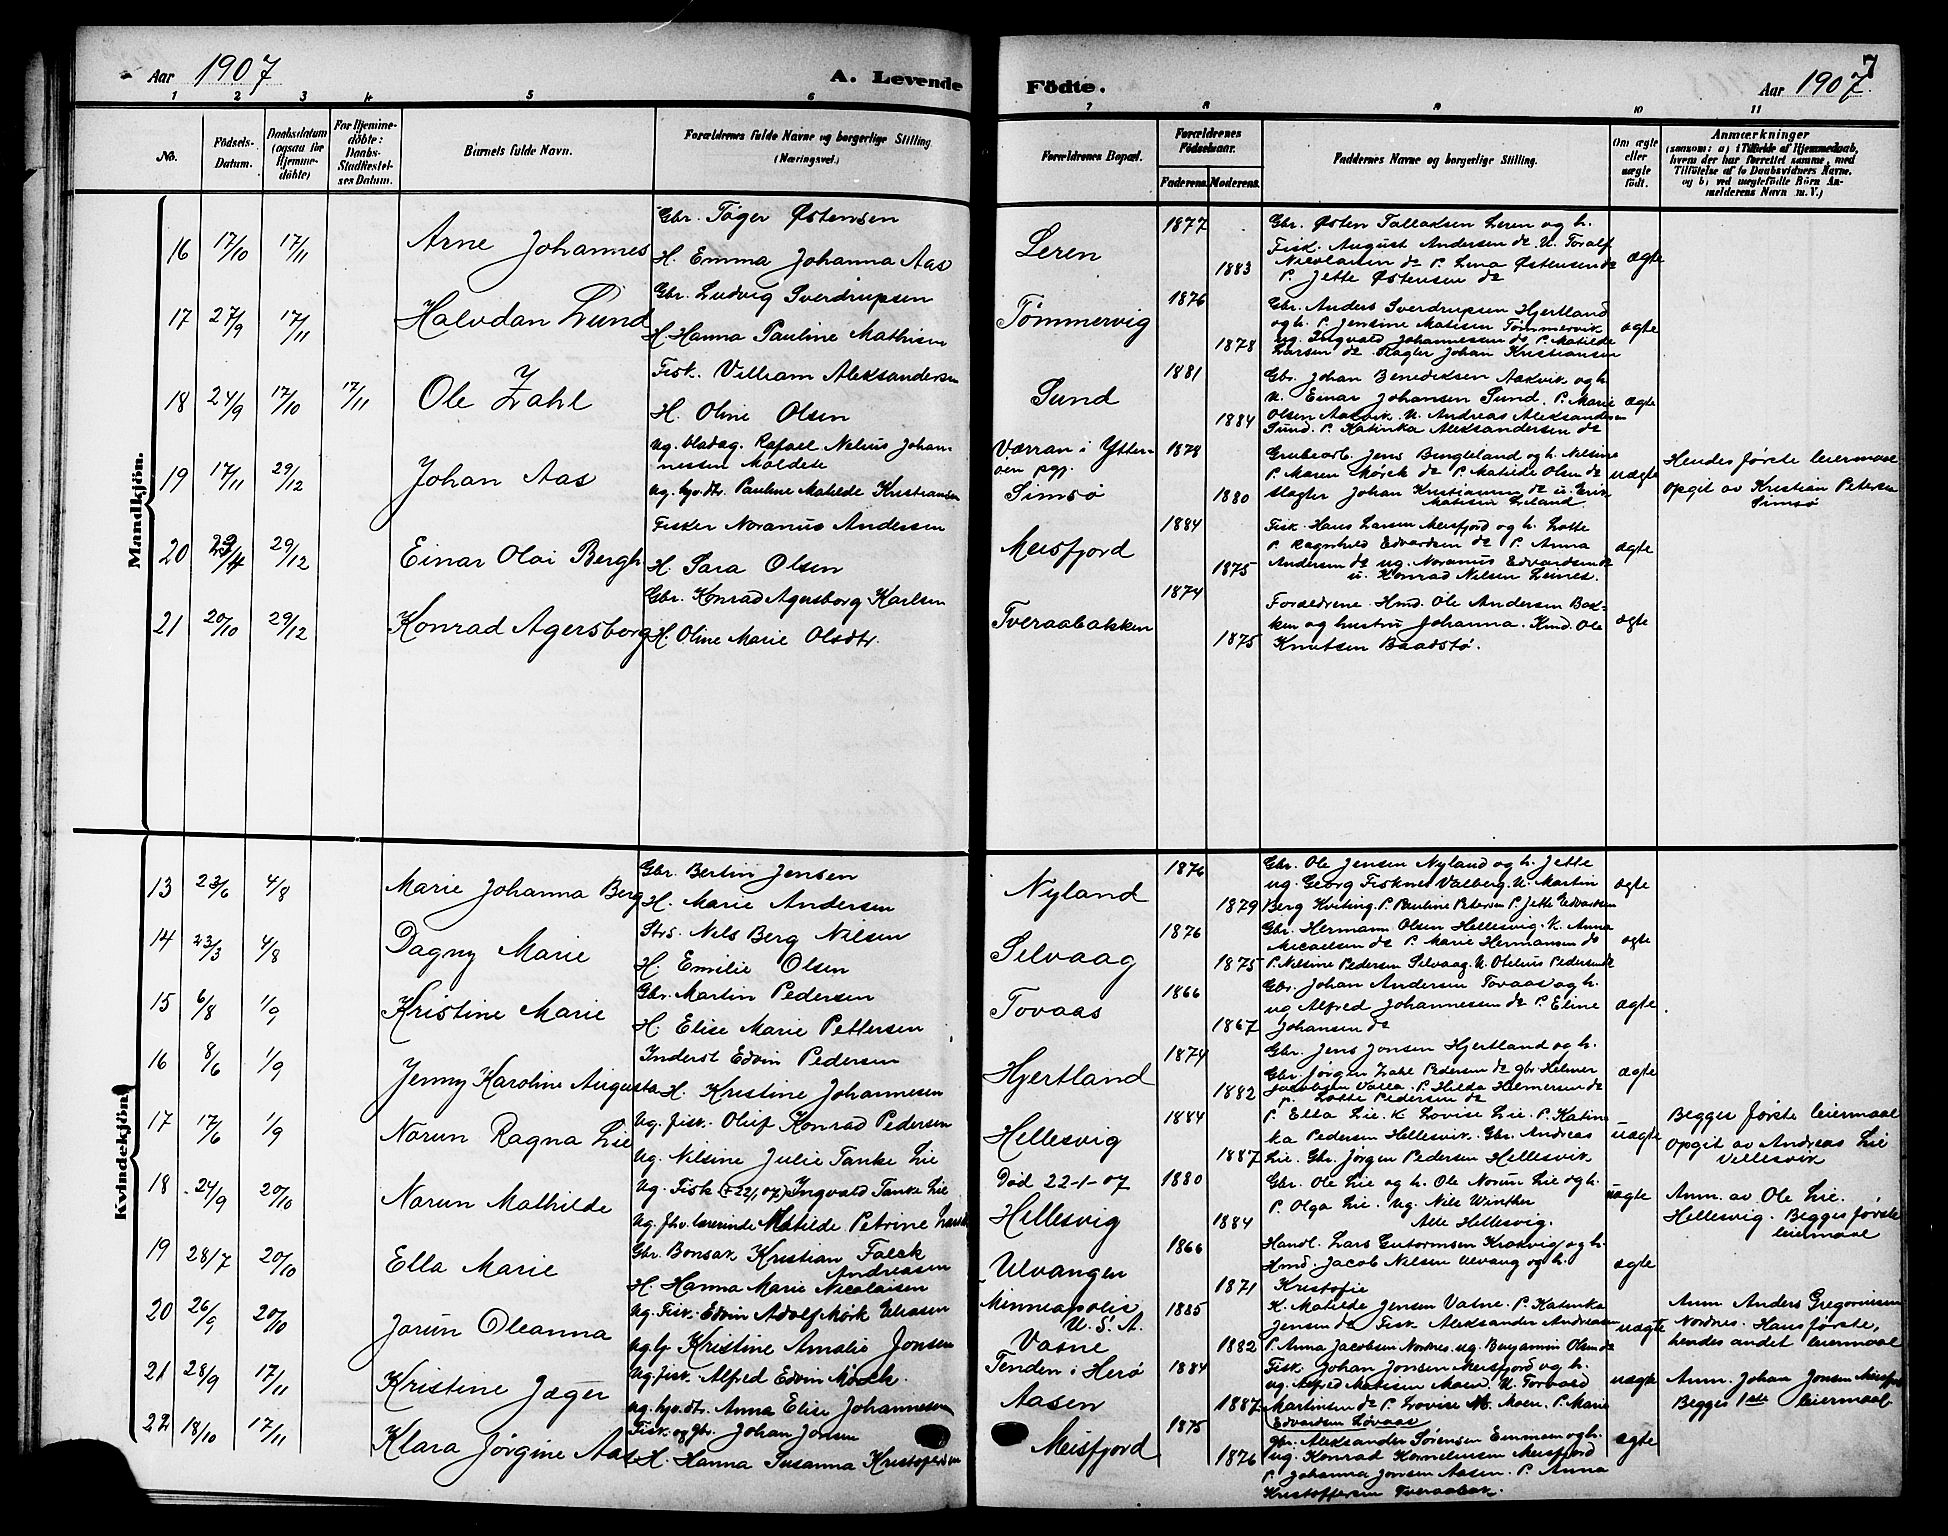 Aar 1907
A. Levende
Födte.
Aar 1907.
7
1 2 3 4 5 6 7 8 9 10 11
No.
Födsels-
Datum.
Daabsdatum
(ogsaa for
Hjemme-
döbte)
For Hjemme-
döbte:
Daabs-
Stadfæstel-
ses Datum.
Barnets fulde Navn.
Forældrenes fulde Navne og borgerlige Stilling
(Næringsvei.)
Forældrenes Bopæl.
Forældrenes
Födselsaar.
Faderens. Moderens.
Faddernes Navne og borgerlige Stilling.
Om ægte
eller
uægte
födt.
Anmærkninger
(saasom: a) i Tilfælde af Hjemmedaab,
hvem der har forrettet samme, med
Tilföielse af to Daabsvidners Navne,
og b) ved uægtefödte Börn An-
melderens Navn m. V.)
Mandkjön.
16 17/10 17/11 Arne Johannes
Gbr. Tøger Østensen
H. Emma Johanna Aas
Leren
1877
1883
Gbr. Østen Tallaksen Leren og h.
Fisk. August Andersen do U. Toralf
Nicolaisen do P. Lina Østensen do
P. Jette Østensen do
ægte
17 27/9 17/11 Halvdan Lund
Gbr. Ludvig Sverdrupsen
H. Hanna Pauline Mathisen
Tømmervig
1876
1878
Gbr. Anders Sverdrupsen Hjertland
og h. P. Jensine Matisen Tømmervik
ug. Ingvald Johannesen do P. Matilde
Larsen do Slagter Johan Kristiansen
ægte
18 24/9 17/10 17/11 Ole Zahl
Fisk. Villiam Aleksandersen
H. Oline Olsen
Sund
1881
1884
Gbr. Johan Benediksen Aakvik og h.
U. Einar Johansen Sund. P. Marie
Olsen Aakvik. U. Andreas Aleksandersen
Sund. P. Katinka Aleksandersen do
ægte
19 17/11 29/12 Johan Aas
Ug. Rafael Nelius Johan-
nessen
ug. hjv. dt. Pauline Matilde Kristiansen
Værran i Ytter-
øen pgj.
Simsø
1878
1880
Grubearb. Jens Bingleland og h. Nilsine
P. Maren Mørck do P. Matilde Olsen do
slagter Johan Kristiansen do u. Erik
Matisen Leland
uægte
Hendes første leiermaal
opgit av Kristian Petersen
Simsø
20 29/12 Einar Olai Bergh
Fisker Noranus Andersen
H. Sara Olsen
Meisfjord
1884
1875
Fisk. Hans Larsen Meisfjord og h. Lotte
P. Ragnhild Edvardsen do P. Anna
Andersen do ug. Noranus Edvardsen do
u. Konrad Nilsen Leines.
ægte
21 20/10 29/12 Konrad Agersborg
Gbr. Konrad Agersborg Karlsen
H. Oline Marie Olsdtr.
Tveraabakken
1874
1875
Forældrene. Hmd. Ole Andersen Bak-
ken og hustru Johanna. Kmd. Ole
Knutsen Baadstø.
ægte
Kvindekjön.
13 23/6 4/8 Marie Johanna Berg
Gbr. Bertin Jensen
H. Marie Andersen
Nyland
1876
1879
Gbr. Ole Jensen Nyland og h. Jette
ug. Georg Fisknes Valberg. U. Martin
Berg Kviting. P. Pauline Petersen P. Jette Edvardsen
ægte
14 23/3 4/8 Dagny Marie
Strs. Nils Berg Nilsen
H. Emilie Olsen
Selvaag
1876
1875
Gbr. Hermann Olsen Hellesvig. K. Anna
Micaelsen do P. Marie Hermansen do
P. Nilsine Pedersen Selvaag. U. Otelius Pedersen do
ægte
15 6/8 1/9 Kristine Marie
Gbr. Martin Pedersen
H. Elise Marie Pettersen
Tovaas
1866
1867
Gbr. Johan Andersen Tovaas og h.
ug Alfred Johannesen do P. Eline
Johansen do
ægte
16 8/6 1/9 Jenny Karoline Augusta
Inderst Edvin Pedersen
H. Kristine Johannesen
Hjertland
1874
1882
Gbr. Jens Jonsen Hjertland og h.
Gbr. Jørgen Zahl Pedersen do gbr Helmer
Jacobsen Valla. P. Hilda Helmersen do
P. Lotte Pedersen do
ægte
17 17/6 1/9 Norun Ragna Lie
Ug. fisk. Oluf Konrad Pedersen
Ug. Nilsine Julie Tanke Lie
Hellesvig
1884
1887
P. Ella Lie. K Lovise Lie. P. Katin-
ka Pedersen Hellesvik. Gbr. Andreas
Lie. Gbr. Jørgen Pedersen Hellesvik
uægte
Begges første leiermaal
opgit av Andreas Lie
Hellesvik
18 24/9 20/10 Norun Mathilde
Ug. Fisk († 22/1 07) Ingvald Tanke Lie
Ug. lærerinde Matilde Petrine
Død 22-1-07
Hellesvig
1880
1884
Gbr. Ole Lie og h. Ole Norun Lie og h.
P. Olga Lie. Ug. Nils Winther
Alle Hellesvig.
uægte
Anm. av Ole Lie.
Hellesvig. Begges første
leiermaal
19 28/7 20/10 Ella Marie
Gbr. Bonsak Kristian Falck
Andreasen
H. Hanna Marie Nicolaisen
Ulvangen
1866
1871
Handl. Lars Gutormsen Krokvig og h.
Hmd. Jacob Nilsen Ulvang og h.
Kristofie
ægte
20 26/9 20/10 Jorun Oleanna
Ug. Fisk. Edvin Adolf Mørk Eliasen
ug. tj. Kristine Amalie Jonsen
Minneapolis
U.S.A.
Vatne
1885
1882
K. Matilde Jensen Vatne. P. Katinka
Jensen do Fisk Aleksander Andreasen
P. Anna Jacobsen Nordnes. ug. Benjamin Olsen do
uægte
Anm Anders Gregoriusen
Nordnes. Hans første,
hendes andet leiermaal
21 28/9 17/11 Kristine Jæger
Ug. fisk. Alfred Edvin Mørch.
ug. hjv. dt. Anna Elise Johannesen
Tenden i Herø
Aasen
1884
1887
Fisk. Johan Jonsen Meisfjord og h.
ug. Alfred Matisen Moen. U. Torvald
Martinsen do P. Lovise M. Moen. P. Marie
Edvardsen Løvaas
uægte
Anm. Johan Jonsen Meisfjord
Begges 1ste leiermaal
22 18/10 17/11 Klara Jørgine Aas
Fisk og gbr. Johan Jonsen
H. Hanna Susanna Kristofersen
Meisfjord
1875
1876
gbr. Aleksander Sørensen og h.
ug. Konrad Korneliussen Meisfjord
P. Johanna Jonsen Aasen. P. Anna
Kristoffersen Tveraabak.
ægte